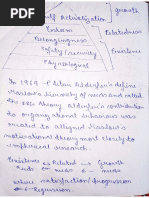 Self Actualization
growth
Esteem
Relatedness
Belongingness
Safety/security
Existence
Physiological
In 1969 Clayton Alderfer's define
Maslow's hierarchy of needs and called
the ERG theory Alderfer's contribution
to organizational behaviour was
created to aligned Maslow's
motivational theory more closely to
empherical research.
Existence Related Growth
needs
where satisfaction/progression
Regression.